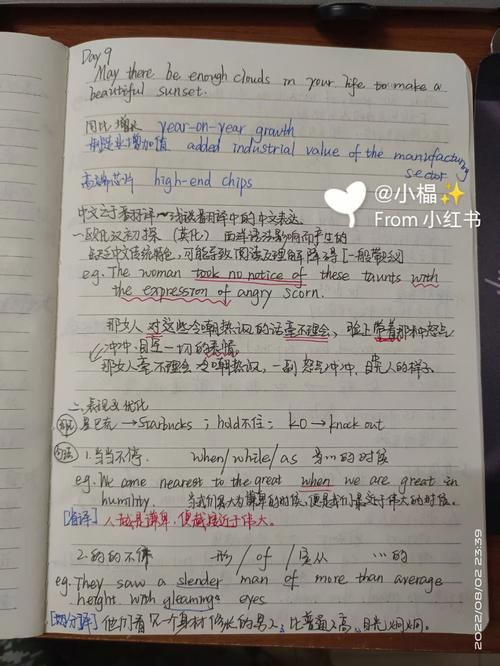 Day 9
May there be enough clouds in your life to make a
beautiful sunset.
同比增长 year-on-year growth
制造业增加值 added industrial value of the manufacturing
sector
高端芯片 high-end chips
@小橸✨
From 小红书
中文之于翻译~浅谈翻译中的中文表达
一、欧化汉初探 (英化) 西洋语法影响而产生的
中文传统特色,可能导致阅读及理解障碍[一般带贬]
e.g. The woman took no notice of these taunts with
the expression of angry scorn.
那女人对这些冷嘲热讽的话毫不理会,脸上带着那种怒气
冲冲、自足一切的表情
那女人毫不理会冷嘲热讽,一副怒气冲冲、自贵人的样子
二、表现及优化
词 星巴克 → Starbucks ; hold不住 ; KO → knock out
句法 1. 当当不停 when/while/as 当…的时候
e.g. We come nearest to the great when we are great in
humility. 当我们最为谦卑的时候,便是我们最近于伟大的时候。
[省译] 人越是谦卑,便越接近于伟大。
2. 的的不休 形/of/定从 …的
eg. They saw a slender man of more than average
height with gleaming eyes
[切分译] 他们看见一个身材修长的男人,比普通人高,目光炯炯。
2022/08/02 23:39